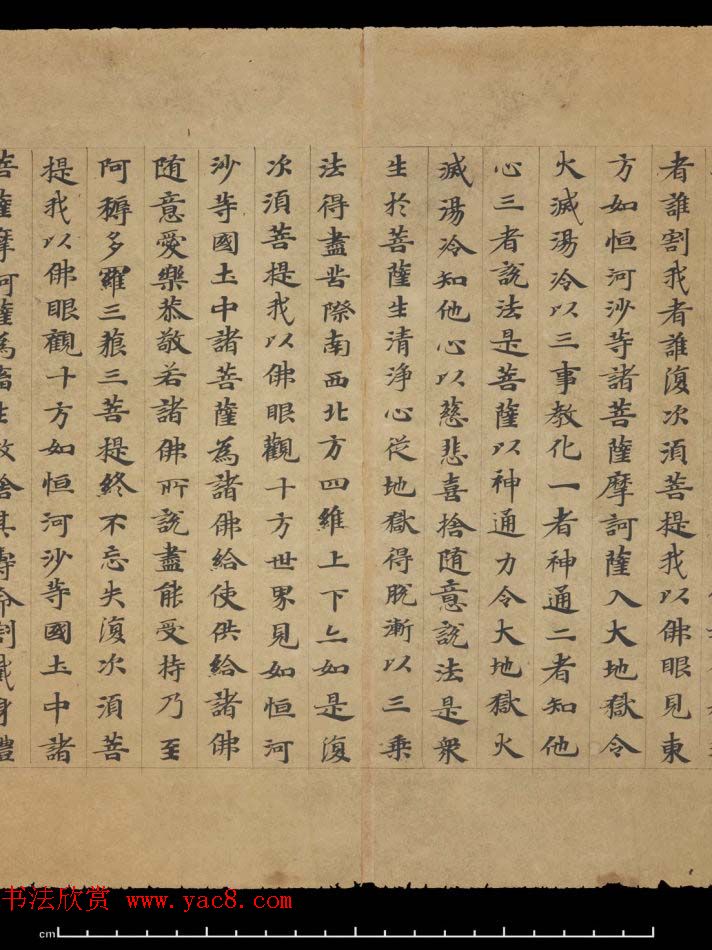 者誰割我者誰復次須菩提我以佛眼見東
方如恒河沙等諸菩薩摩訶薩入大地獄令
火滅湯冷以三事教化一者神通二者知他
心三者說法是菩薩以神通力令大地獄火
滅湯冷知他心以慈悲喜捨随意說法是衆
生於菩薩生清淨心從地獄得脫漸以三乘
法得盡苦際南西北方四維上下亦如是復
次須菩提我以佛眼觀十方世界見如恒河
沙等國土中諸菩薩為諸佛給使供給諸佛
随意愛樂恭敬若諸佛所說盡能受持乃至
阿耨多羅三藐三菩提終不忘失復次須菩
提我以佛眼觀十方如恒河沙等國土中諸
菩薩摩訶薩為畜生故捨其壽命割截身體
书法欣赏 www.yac8.com
cm